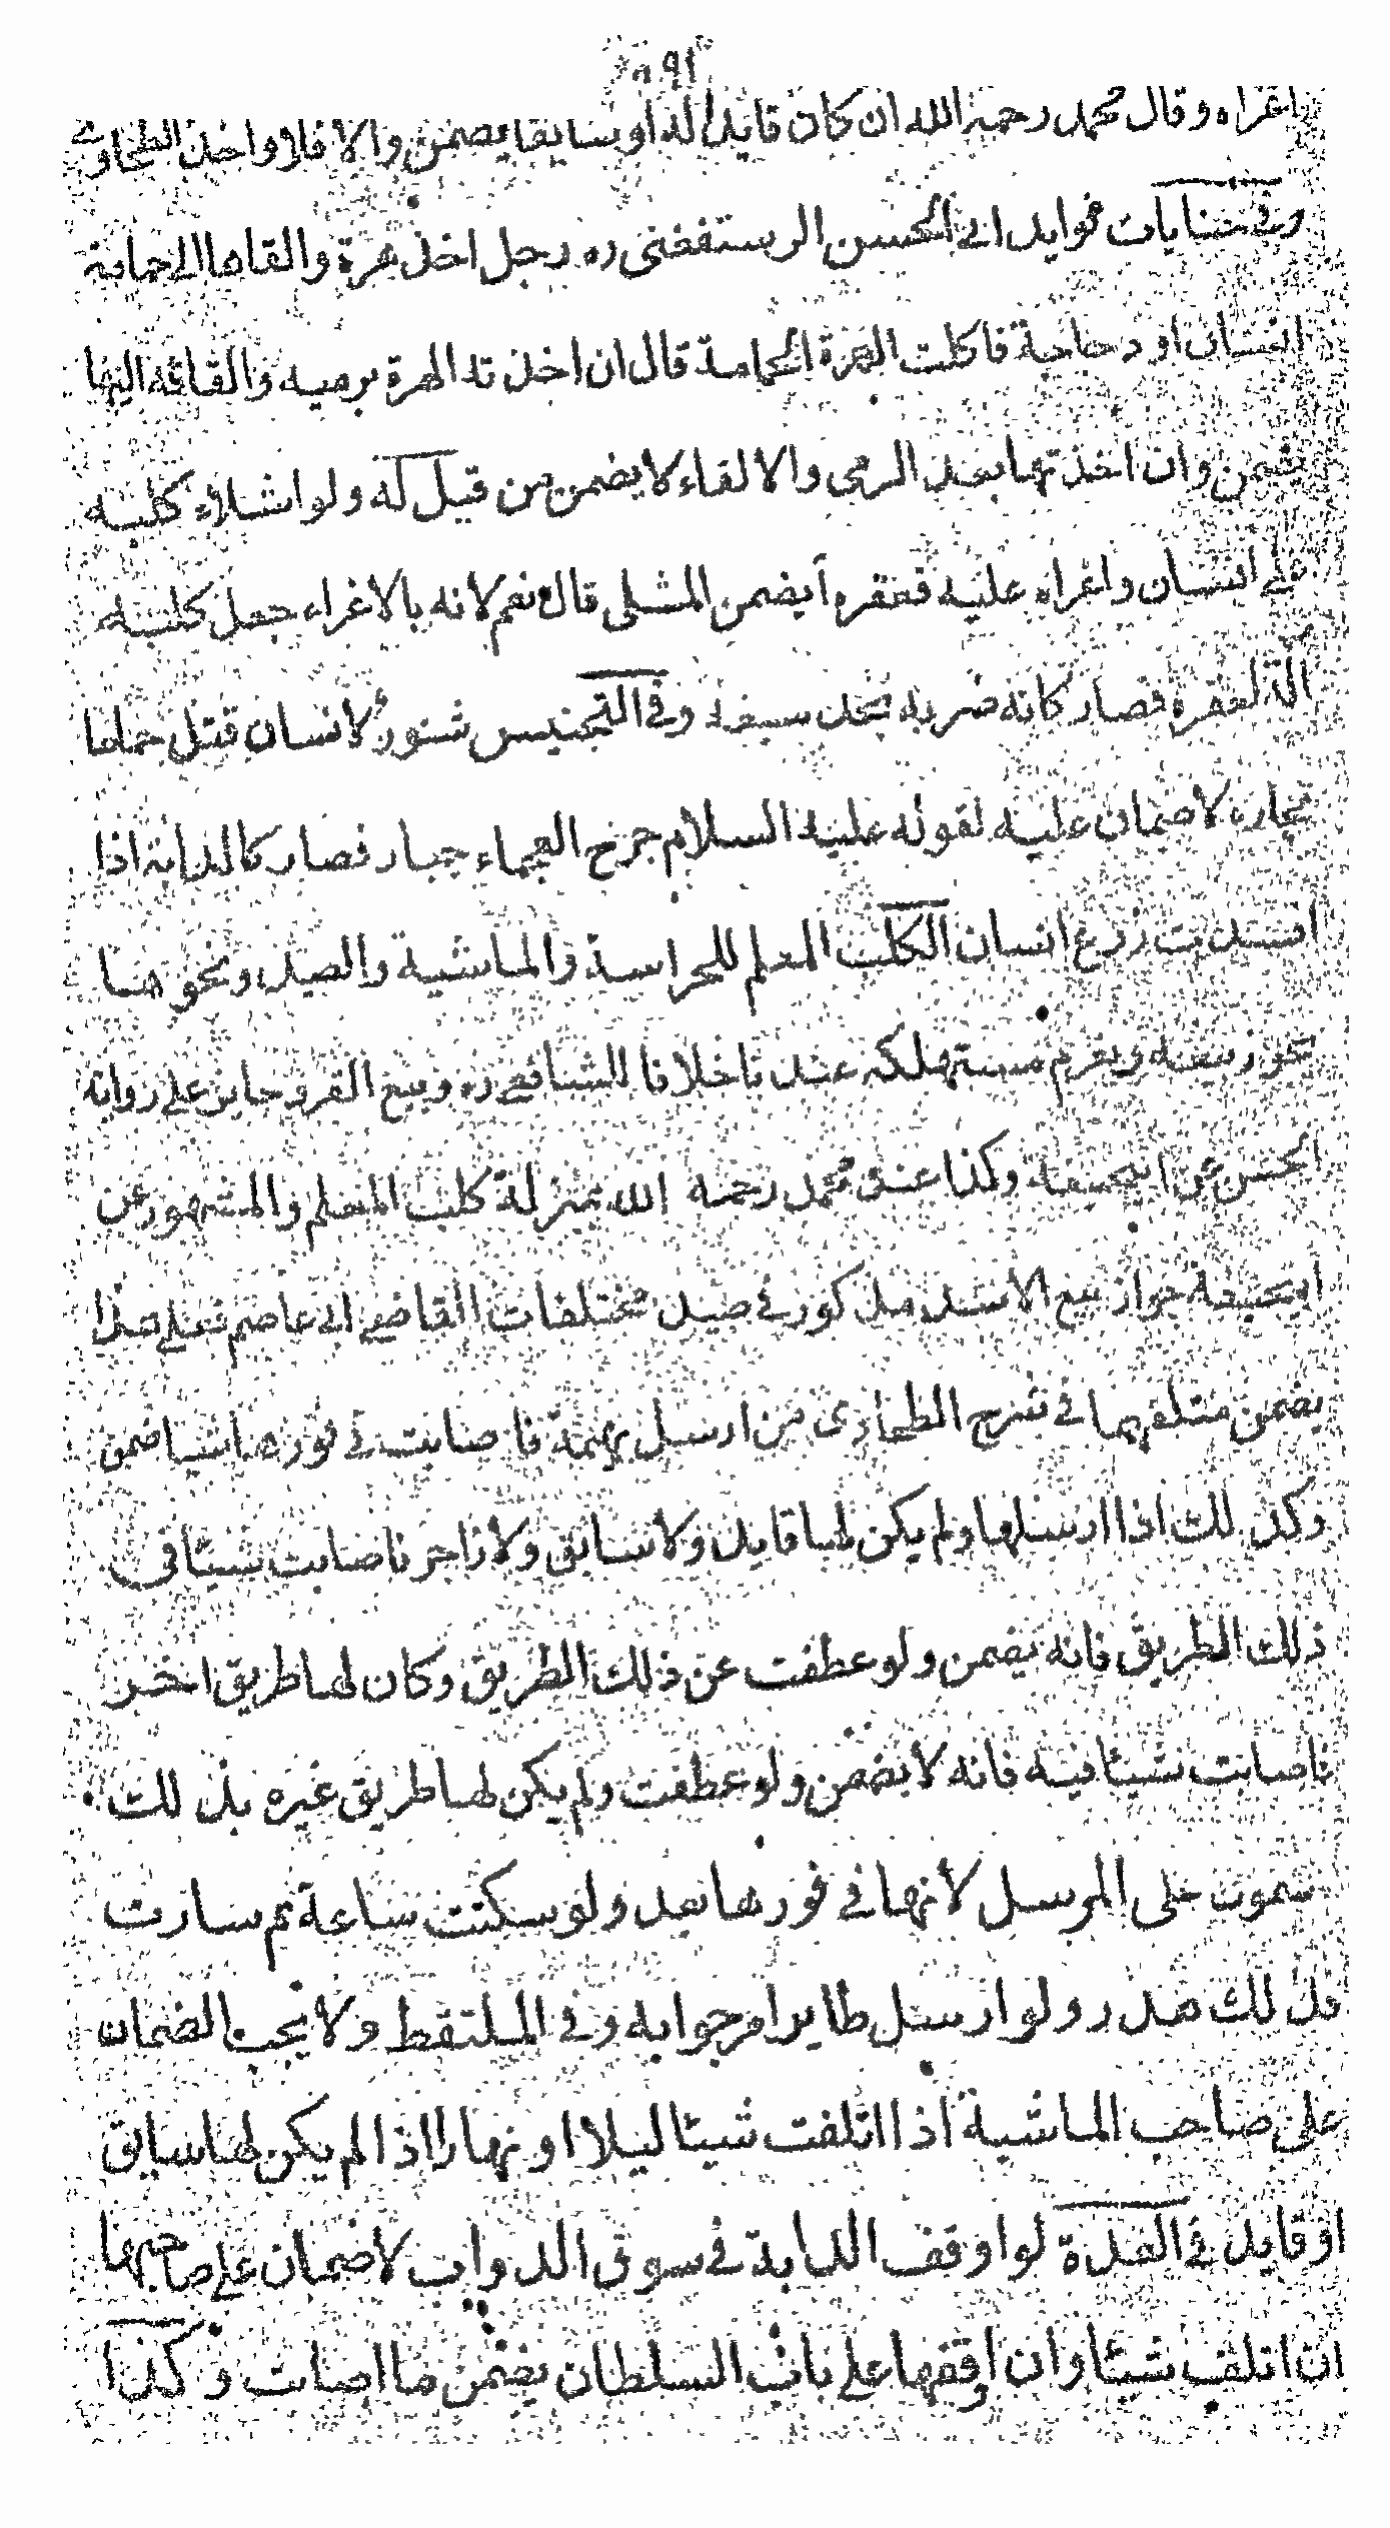 اغراه وقال محمد رحمه الله ان كان قايدا له او سايقا يضمن والا فلا واخذ الطحاوي
وفي جنايات فوايد ابي الحسن الرستفغني ره رجل اخذ هرة والقاها الى حمامة
انسان او دجاجة فاكلت الهرة الحمامة قال ان اخذته الهرة برميه والقائه اليها
يضمن وان اخذتها بعد الرمي والالقاء لا يضمن من قيل له ولو اشلاء كلبه
على انسان واغراه عليه فعقره أيضمن المشلى قال نعم لانه بالاغراء جعل كلبه
آلة لعقره فصار كانه ضربه بحد سيفه وفي التجنيس سنور لانسان قتل حماما
لجاره لا ضمان عليه لقوله عليه السلام جرح العجماء جبار فصار كالدابة اذا
افسدت زرع انسان الكلب المعلم للحراسة والماشية والصيد ونحو هنا
يجوز بيعه ويغرم مستهلكه عندنا خلافا للشافعي ره وبيع القرد جايز على رواية
الحسن عن ابيحنيفة وكذا عند محمد رحمه الله بمنزلة كلب المعلم والمشهور عن
ابيحنيفة جواز بيع الاسد مذكور في صيد مختلفات القاضي ابي عاصم فعلى هذا
يضمن متلفهما في شرح الطحاوى من ارسل بهيمة فاصابت في فورها شيا ضمن
وكذلك اذا ارسلها ولم يكن لها قايد ولا سايق ولا زاجر فاصابت شيئا في
ذلك الطريق فانه يضمن ولو عطفت عن ذلك الطريق وكان لها طريق اخر
فاصابت شيئا فيه فانه لا يضمن ولو عطفت ولم يكن لها طريق غيره بذلك
على المرسل لانها في فورها بعد ولو سكنت ساعة ثم سارت
هدر ولو ارسل طايرا مرجوابه وفي الملتقط ولا يجب الضمان
على صاحب الماشية اذا اتلفت شيئا ليلا او نهارا اذا لم يكن لها سايق
او قايد في العدة لو اوقف الدابة في سوق الدواب لا ضمان على صاحبها
ان اتلف شيئا وان اوقفها على باب السلطان يضمن ما اصابت وكذا